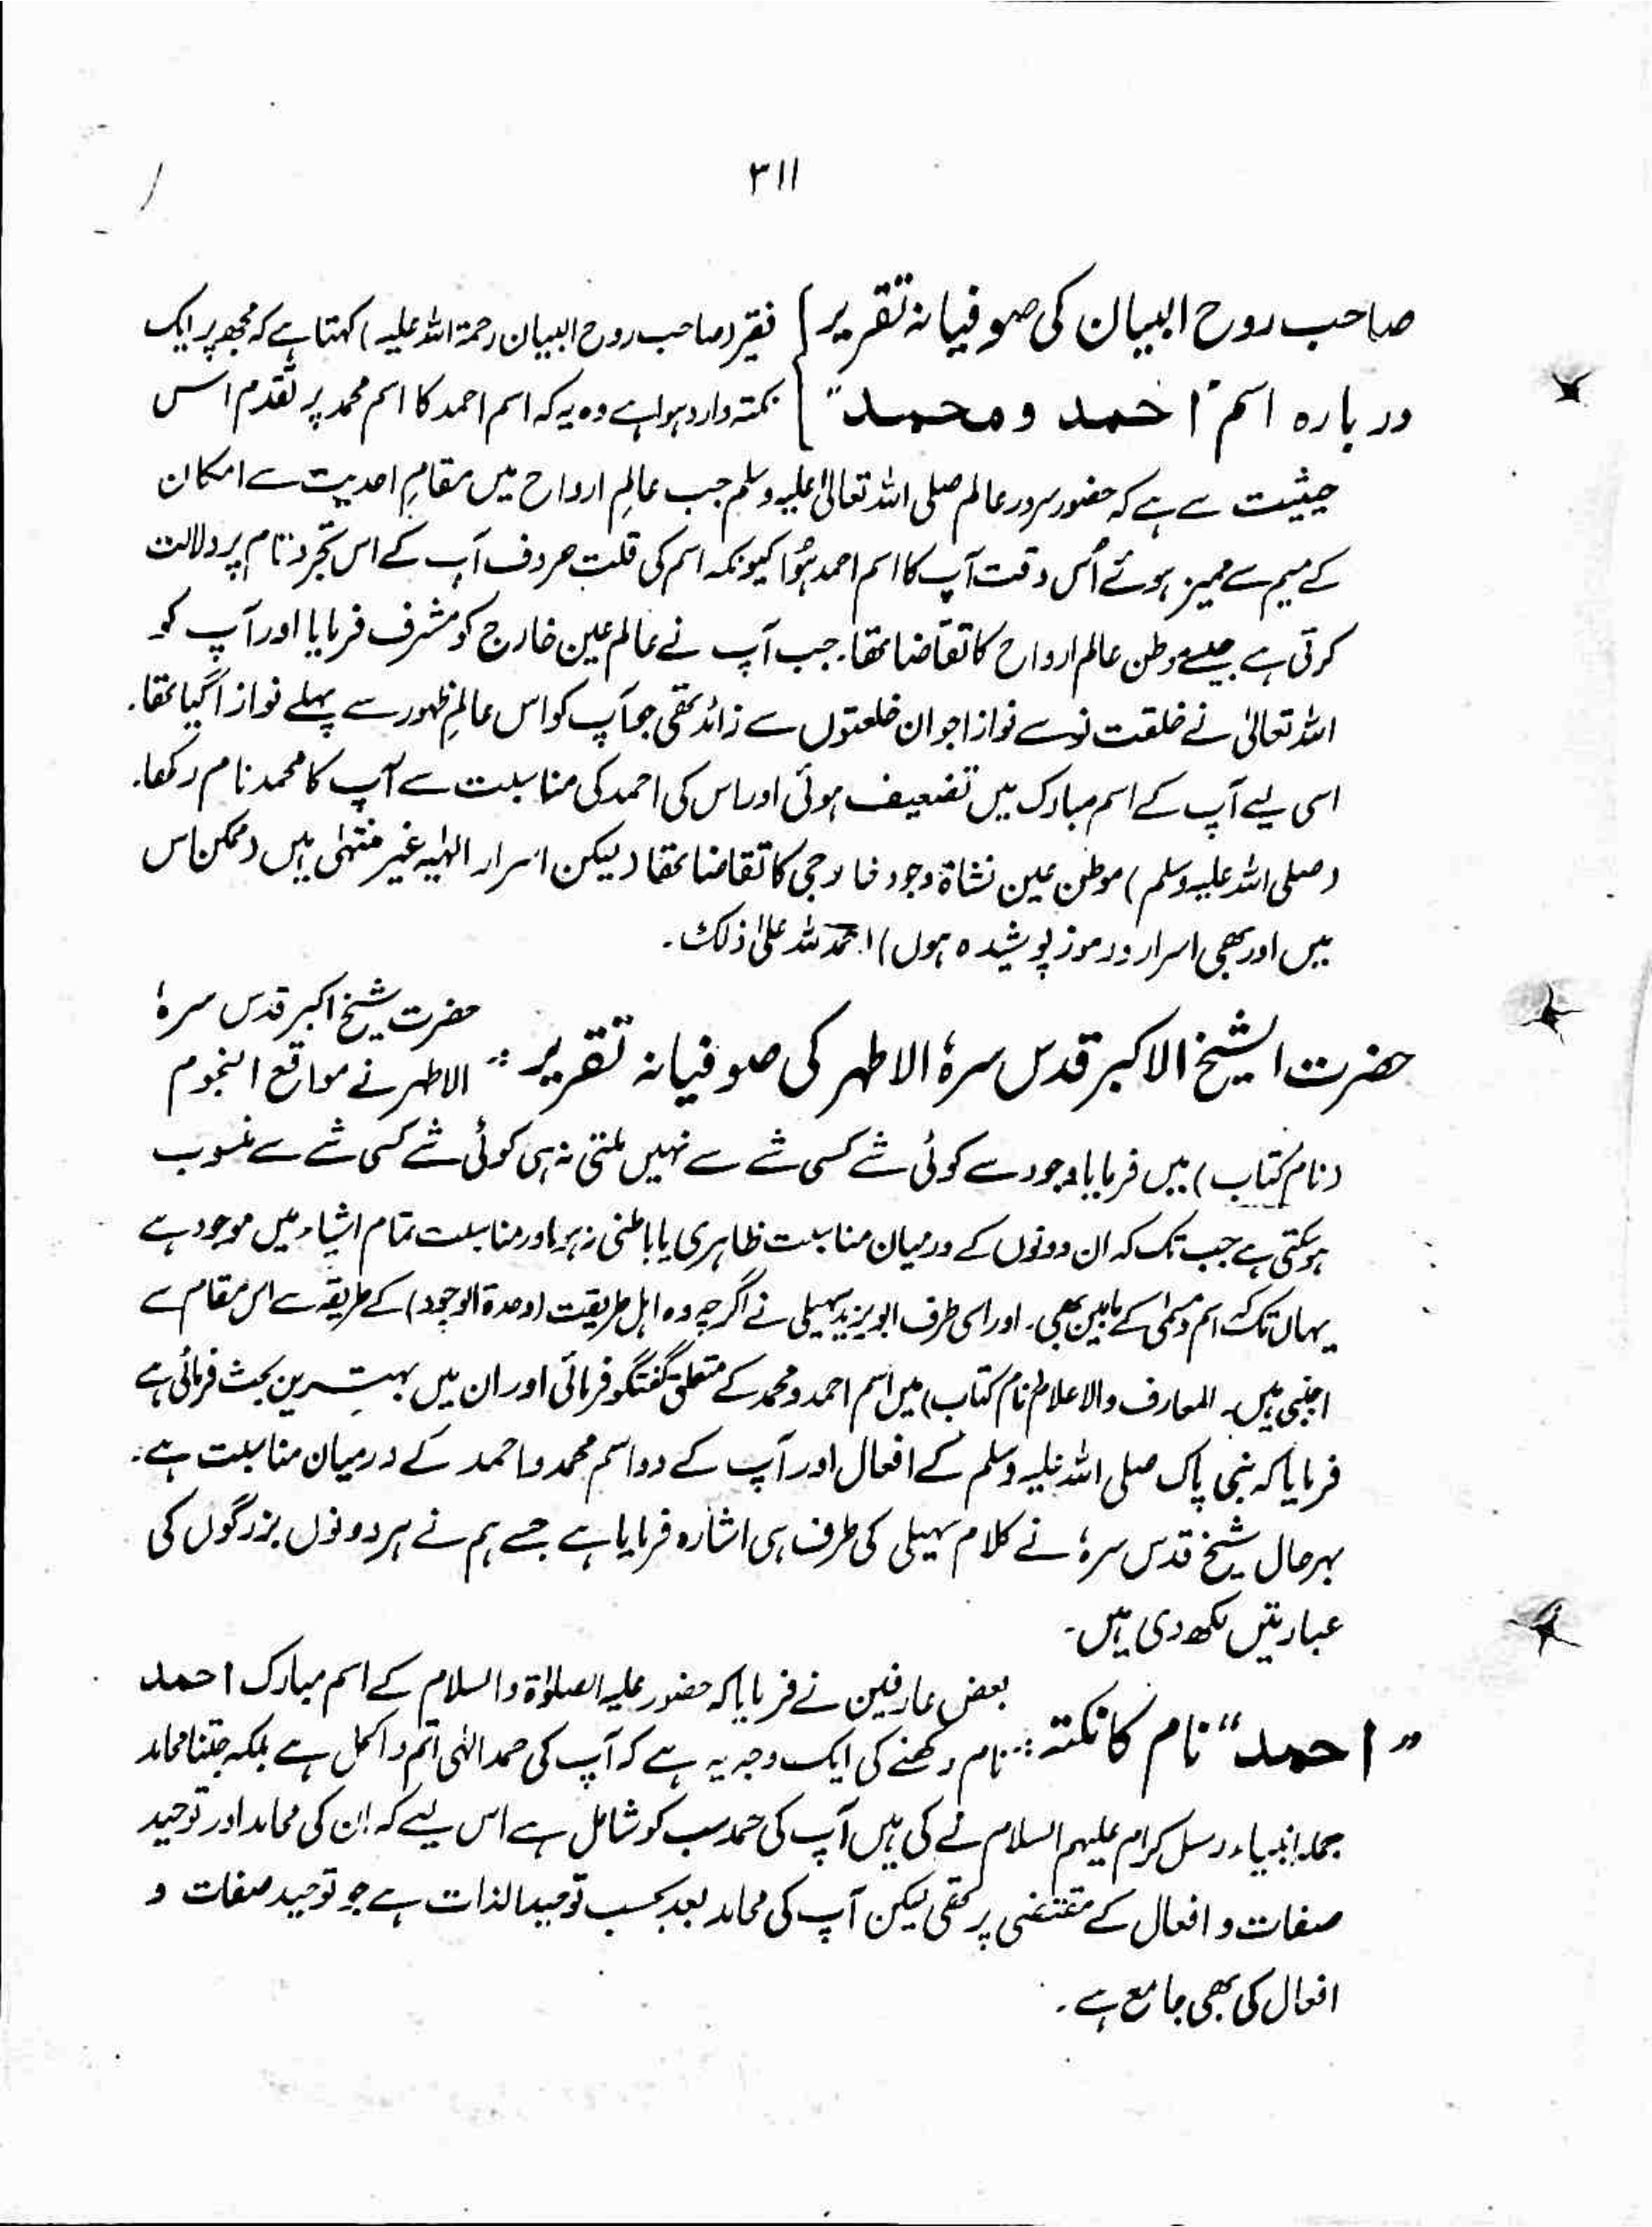 ۳۱۱
صاحب روح البیان کی صوفیانہ تقریر } فقیر (صاحب روح البیان رحمۃ اللہ علیہ) کہتا ہے کہ مجھ پر ایک
دربارہ اسم "احمد و محمد" } نکتہ وارد ہوا ہے وہ یہ کہ اسم احمد کا اسم محمد پر تقدم اس
حیثیت سے ہے کہ حضور سرور عالم صلی اللہ تعالیٰ علیہ وسلم جب عالمِ ارواح میں مقامِ احدیت سے امکان
کے میم سے ممیز ہوئے اُس وقت آپ کا اسم احمد ہُوا کیونکہ اسم کی قلتِ حروف آپ کے اس تجرد تام پر دلالت
کرتی ہے جیسے موطن عالم ارواح کا تقاضا تھا۔ جب آپ نے عالم عین خارج کو مشرف فرمایا اور آپ کو
اللہ تعالیٰ نے خلقت نو سے نوازا جو ان خلعتوں سے زائد تھی جو آپ کو اس عالمِ ظہور سے پہلے نوازا گیا تھا۔
اسی لیے آپ کے اسم مبارک میں تضعیف ہوئی اور اس کی احمد کی مناسبت سے آپ کا محمد نام رکھا۔
(صلی اللہ علیہ وسلم) موطن عین نشاۃ وجود خارجی کا تقاضا تھا (لیکن اسرار الٰہیہ غیر منتہٰی ہیں (ممکن اس
میں اور بھی اسرار و رموز پوشیدہ ہوں) الحمد للہ علیٰ ذلک۔
حضرت الشیخ الاکبر قدس سرہٗ الاطہر کی صوفیانہ تقریر :- حضرت شیخ اکبر قدس سرہٗ
الاطہر نے مواقع النجوم
(نام کتاب) میں فرمایا وجود سے کوئی شے کسی شے سے نہیں ملتی نہ ہی کوئی شے کسی شے سے منسوب
ہو سکتی ہے جب تک کہ ان دونوں کے درمیان مناسبت ظاہری یا باطنی نہ ہو اور مناسبت تمام اشیاء میں موجود ہے
یہاں تک کہ اسم و مسمّٰی کے مابین بھی۔ اور اسی طرف ابو یزید سہیلی نے اگرچہ وہ اہل طریقت (وحدۃ الوجود) کے طریقہ سے اس مقام سے
اجنبی ہیں۔ المعارف والاعلام (نام کتاب) میں اسم احمد و محمد کے متعلق گفتگو فرمائی اور ان میں بہترین بحث فرمائی ہے
فرمایا کہ نبی پاک صلی اللہ علیہ وسلم کے افعال اور آپ کے دو اسم محمد و احمد کے درمیان مناسبت ہے۔
بہرحال شیخ قدس سرہٗ نے کلام سہیلی کی طرف ہی اشارہ فرمایا ہے جسے ہم نے ہر دونوں بزرگوں کی
عبارتیں لکھ دی ہیں۔
"احمد" نام کا نکتہ :- بعض عارفین نے فرمایا کہ حضور علیہ الصلوٰۃ والسلام کے اسم مبارک احمد
نام رکھنے کی ایک وجہ یہ ہے کہ آپ کی حمد الٰہی اتم و اکمل ہے بلکہ جتنا محامد
جملہ انبیاء و رسل کرام علیہم السلام نے کی ہیں آپ کی حمد سب کو شامل ہے اس لیے کہ ان کی محامد اور توحید
صفات و افعال کے مقتضی پر تھی لیکن آپ کی محامد بحسب توحید الذات ہے جو توحید صفات و
افعال کی بھی جامع ہے۔